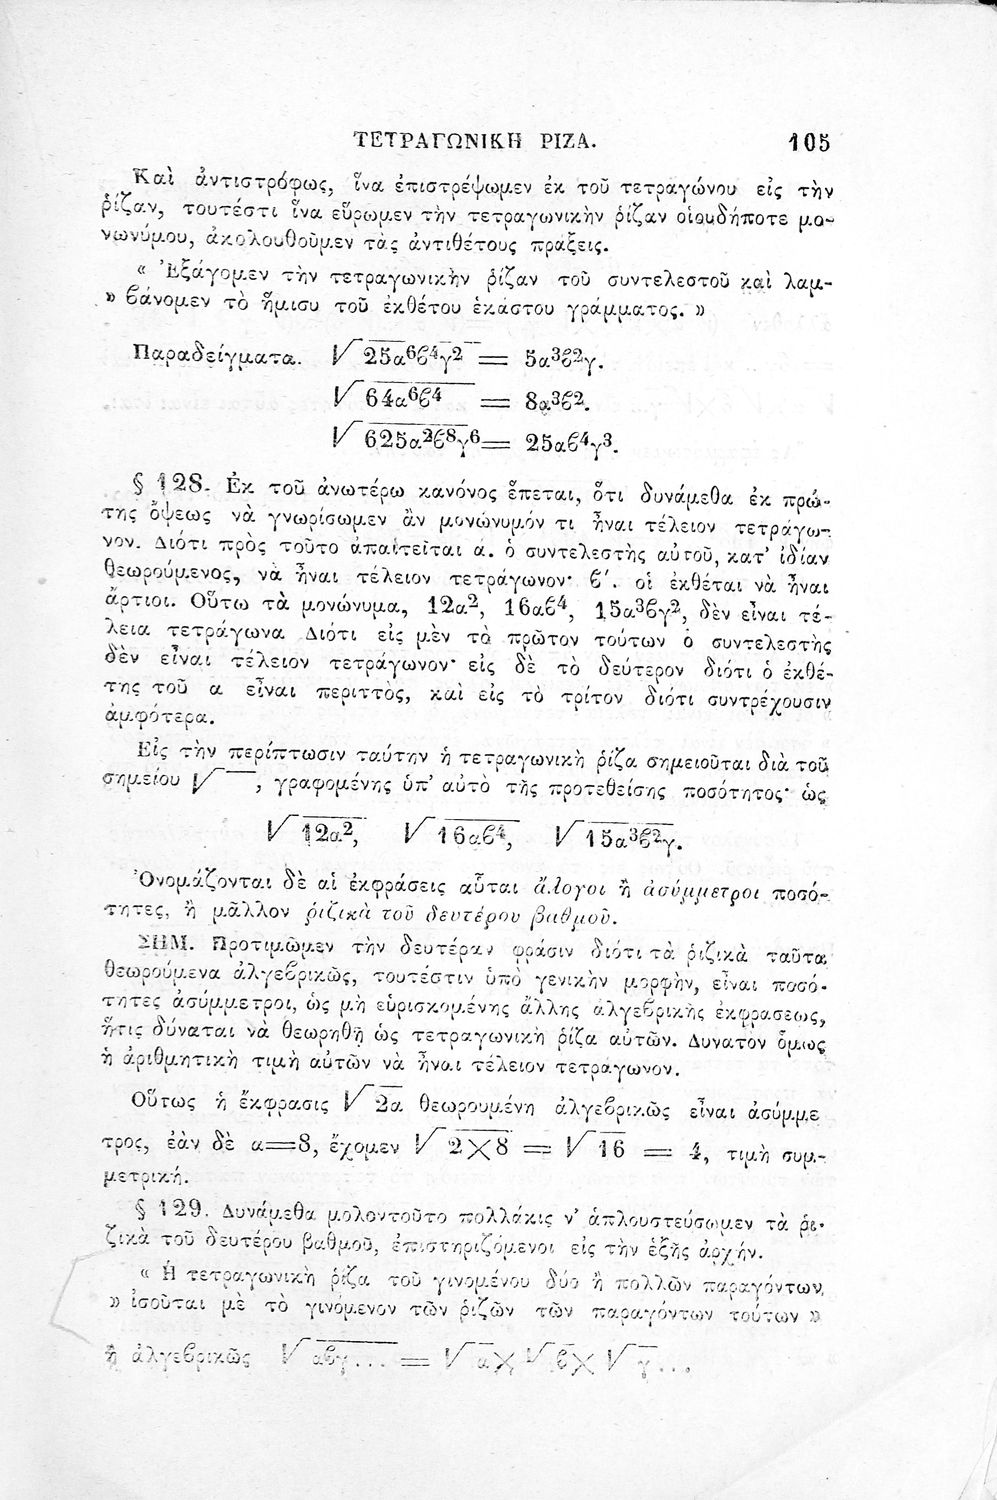 ΤΕΤΡΑΓΩΝΙΚΗ ΡΙΖΑ. 105
Καὶ ἀντιστρόφως, ἵνα ἐπιστρέψωμεν ἐκ τοῦ τετραγώνου εἰς τὴν
ῥίζαν, τουτέστι ἵνα εὕρωμεν τὴν τετραγωνικὴν ῥίζαν οἱουδήποτε μο-
νωνύμου, ἀκολουθοῦμεν τὰς ἀντιθέτους πράξεις.
« Ἐξάγομεν τὴν τετραγωνικὴν ῥίζαν τοῦ συντελεστοῦ καὶ λαμ-
» βάνομεν τὸ ἥμισυ τοῦ ἐκθέτου ἑκάστου γράμματος. »
Παραδείγματα. √25α⁶β⁴γ² = 5α³β²γ.
√64α⁶β⁴ = 8α³β².
√625α²β⁸γ⁶ = 25αβ⁴γ³.
§ 128. Ἐκ τοῦ ἀνωτέρω κανόνος ἕπεται, ὅτι δυνάμεθα ἐκ πρώ-
της ὄψεως νὰ γνωρίσωμεν ἂν μονώνυμόν τι ἦναι τέλειον τετράγω-
νον. Διότι πρὸς τοῦτο ἀπαιτεῖται α. ὁ συντελεστὴς αὐτοῦ, κατ' ἰδίαν
θεωρούμενος, νὰ ἦναι τέλειον τετράγωνον· β′. οἱ ἐκθέται νὰ ἦναι
ἄρτιοι. Οὕτω τὰ μονώνυμα, 12α², 16αβ⁴, 15α³βγ², δὲν εἶναι τέ-
λεια τετράγωνα Διότι εἰς μὲν τὸ πρῶτον τούτων ὁ συντελεστὴς
δὲν εἶναι τέλειον τετράγωνον· εἰς δὲ τὸ δεύτερον διότι ὁ ἐκθέ-
της τοῦ α εἶναι περιττὸς, καὶ εἰς τὸ τρίτον διότι συντρέχουσιν
ἀμφότερα.
Εἰς τὴν περίπτωσιν ταύτην ἡ τετραγωνικὴ ῥίζα σημειοῦται διὰ τοῦ
σημείου √‾, γραφομένης ὑπ' αὐτὸ τῆς προτεθείσης ποσότητος· ὡς
√12α², √16αβ⁴, √15α³β²γ.
Ὀνομάζονται δὲ αἱ ἐκφράσεις αὗται ἄλογοι ἢ ἀσύμμετροι ποσό-
τητες, ἢ μᾶλλον ῥιζικὰ τοῦ δευτέρου βαθμοῦ.
ΣΗΜ. Προτιμῶμεν τὴν δευτέραν φράσιν διότι τὰ ῥιζικὰ ταῦτα
θεωρούμενα ἀλγεβρικῶς, τουτέστιν ὑπὸ γενικὴν μορφὴν, εἶναι ποσό-
τητες ἀσύμμετροι, ὡς μὴ εὑρισκομένης ἄλλης ἀλγεβρικῆς ἐκφράσεως,
ἥτις δύναται νὰ θεωρηθῇ ὡς τετραγωνικὴ ῥίζα αὐτῶν. Δυνατὸν ὅμως
ἡ ἀριθμητικὴ τιμὴ αὐτῶν νὰ ἦναι τέλειον τετράγωνον.
Οὕτως ἡ ἔκφρασις √2α θεωρουμένη ἀλγεβρικῶς εἶναι ἀσύμμε
τρος, ἐὰν δὲ α=8, ἔχομεν √2×8 = √16 = 4, τιμὴ συμ-
μετρική.
§ 129. Δυνάμεθα μολοντοῦτο πολλάκις ν' ἁπλουστεύσωμεν τὰ ῥι-
ζικὰ τοῦ δευτέρου βαθμοῦ, ἐπιστηριζόμενοι εἰς τὴν ἑξῆς ἀρχήν.
« Ἡ τετραγωνικὴ ῥίζα τοῦ γινομένου δύο ἢ πολλῶν παραγόντων,
» ἰσοῦται μὲ τὸ γινόμενον τῶν ῥιζῶν τῶν παραγόντων τούτων »
ἢ ἀλγεβρικῶς √αβγ... = √α × √β × √γ...